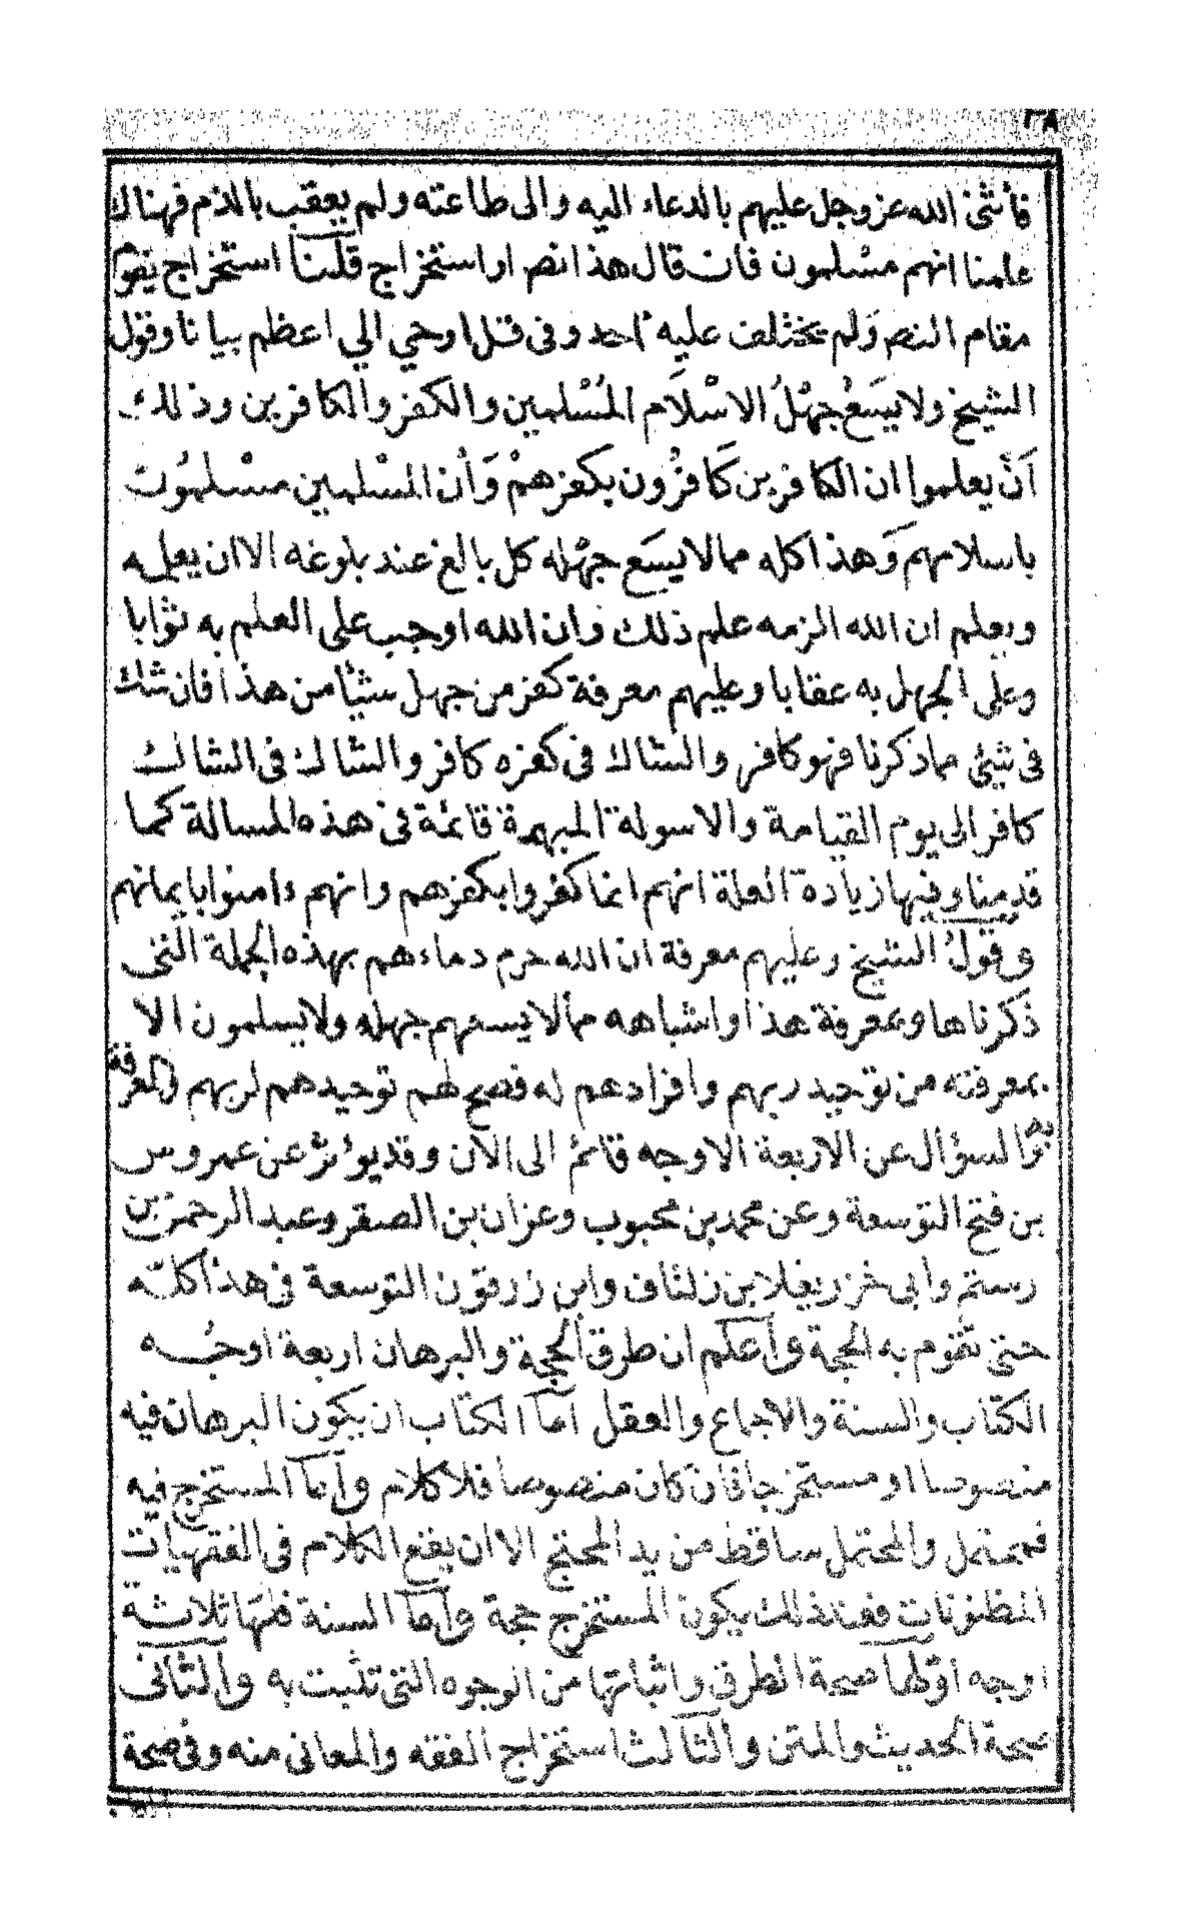 ٣٨
فأثنى الله عز وجل عليهم بالدعاء اليه والى طاعته ولم يعقب بالذم فهناك
علمنا انهم مسلمون فان قال هذا نص او استخراج قلنا استخراج يقوم
مقام النص ولم يختلف عليه احد وفى قل اوحي الي اعظم بيانا وقول
الشيخ ولا يسع جهل الاسلام المسلمين والكفر والكافرين وذلك
أن يعلموا ان الكافرين كافرون بكفرهم وأن المسلمين مسلمون
باسلامهم وهذا كله مما لا يسع جهله كل بالغ عند بلوغه الا ان يعلمه
ويعلم ان الله الزمه علم ذلك وان الله اوجب على العلم به ثوابا
وعلى الجهل به عقابا وعليهم معرفة كفر من جهل شيئا من هذا فان شك
فى شيئ مما ذكرنا فهو كافر والشاك فى كفره كافر والشاك فى الشاك
كافر الى يوم القيامة والاسولة المبهمة قائمة فى هذه المسالة كما
قدمنا وفيها زيادة العلة انهم انما كفروا بكفرهم وانهم ءامنوا بايمانهم
وقول الشيخ وعليهم معرفة ان الله حرم دماءهم بهذه الجملة التى
ذكرناها وبمعرفة هذا واشباهه مما لا يسعهم جهله ولا يسلمون الا
بمعرفته من توحيد ربهم وافرادهم له فصح لهم توحيدهم لربهم والمعرفة
به والسؤال عن الاربعة الاوجه قائم الى الآن وقد يؤثر عن عمروس
بن فتح التوسعة وعن محمد بن محبوب وعزان بن الصقر وعبد الرحمن بن
رستم وأبى خزر يغلا بن زلتاف وابن زرقون التوسعة فى هذا كله
حتى تقوم به الحجة واعلم ان طرق الحجة والبرهان اربعة اوجه
الكتاب والسنة والاجماع والعقل اما الكتاب ان يكون البرهان فيه
منصوصا او مستخرجا فان كان منصوصا فلا كلام واما المستخرج فيه
فمحتمل والمحتمل ساقط من يد المحتج الا ان يقع الكلام فى الفقهيات
المظنونات فعند ذلك يكون المستخرج حجة واما السنة فلها ثلاثة
اوجه اولها صحة الطرق واثباتها من الوجوه التى تثبت به والثانى
صحة الحديث والمتن والثالث استخراج الفقه والمعانى منه وفى صحة